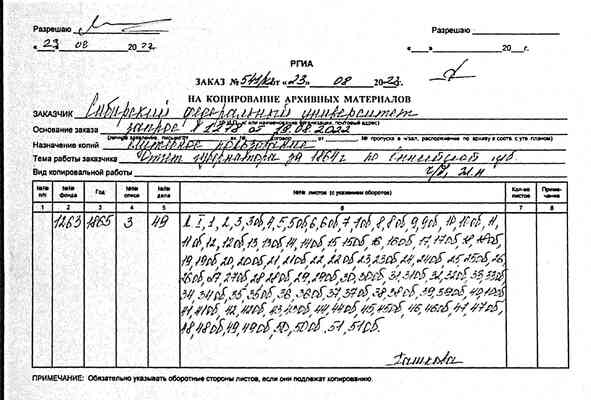 Разрешаю
Разрешаю
« 23 » 08 2022
«____»________ 20___г.
РГИА
ЗАКАЗ № 541/к от «23» 08 2022
НА КОПИРОВАНИЕ АРХИВНЫХ МАТЕРИАЛОВ
ЗАКАЗЧИК Сибирский федеральный университет
Основание заказа запрос № 1278 от 18.08.2022
Назначение копий
Тема работы заказчика Отчет губернатора за 1864 г по Енисейской губ.
Вид копировальной работы
№№ п/п №№ фонда Год №№ описи №№ дела №№ листов (с указанием оборотов) Кол-во листов Приме-чание
1 2 3 4 5 6 7 8
1263 1865 3 49 1, 2, 3, 3об, 4, 5, 5об, 6, 6об, 7, 7об, 8, 8об, 9, 9об, 10, 10об, 11,
11об, 12, 12об, 13, 13об, 14, 14об, 15, 15об, 16, 16об, 17, 17об, 18, 18об,
19, 19об, 20, 20об, 21, 21об, 22, 22об, 23, 23об, 24, 24об, 25, 25об, 26,
26об, 27, 27об, 28, 28об, 29, 29об, 30, 30об, 31, 31об, 32, 32об, 33, 33об,
34, 34об, 35, 35об, 36, 36об, 37, 37об, 38, 38об, 39, 39об, 40, 40об,
41, 41об, 42, 42об, 43, 43об, 44, 44об, 45, 45об, 46, 46об, 47, 47об,
48, 48об, 49, 49об, 50, 50об, 51, 51об.
ПРИМЕЧАНИЕ: Обязательно указывать оборотные стороны листов, если они подлежат копированию